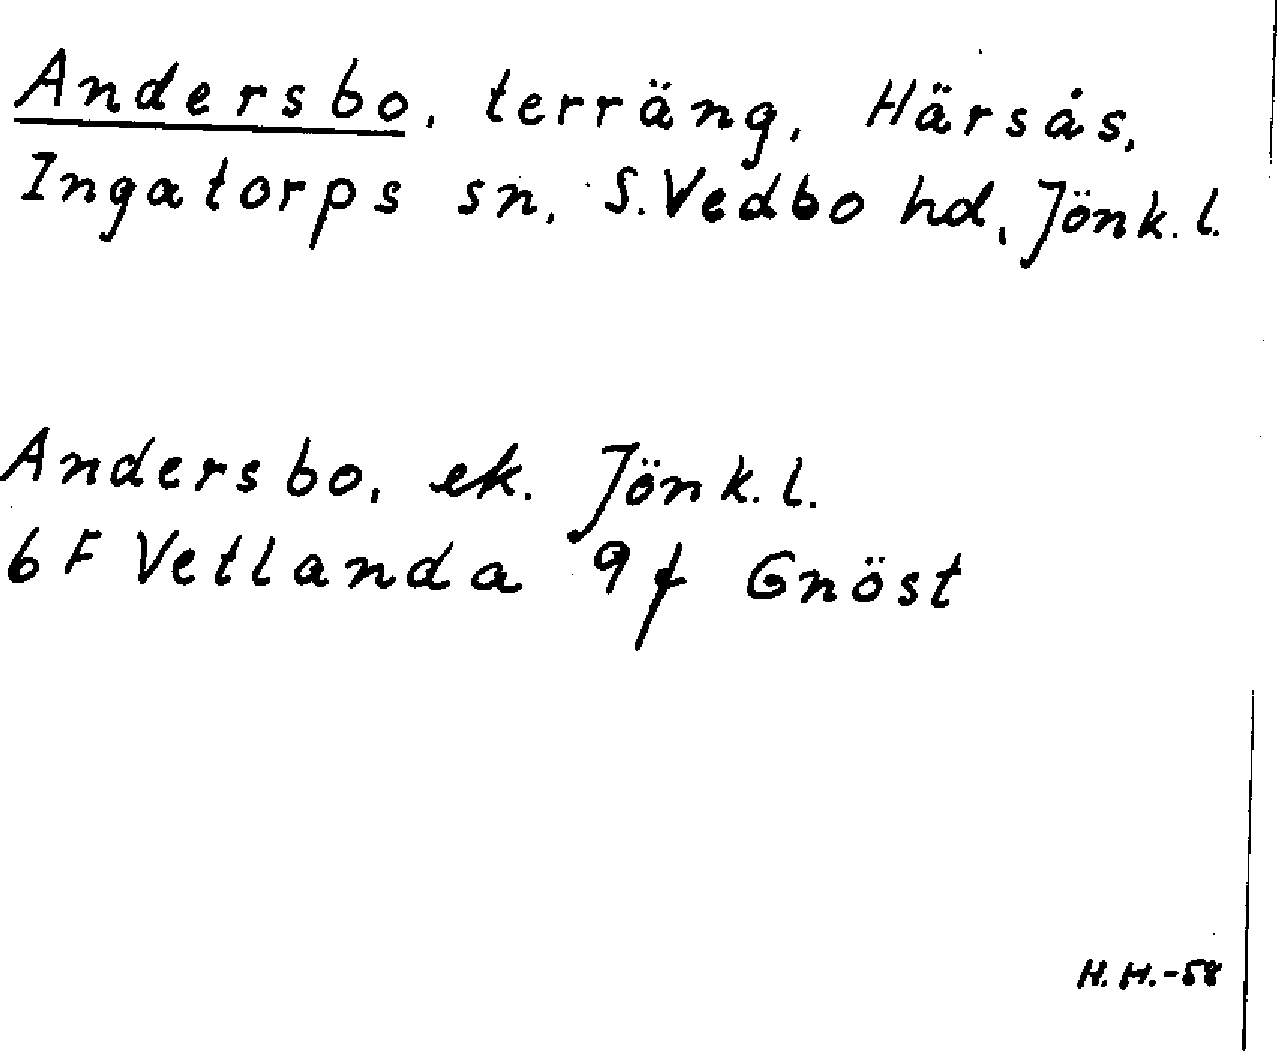 Andersbo, terräng, Härsås,
Ingatorps sn, S. Vedbo hd, Jönk. l.
Andersbo, ek. Jönk. l.
6 F Vetlanda 9 f Gnöst
H. H.-58